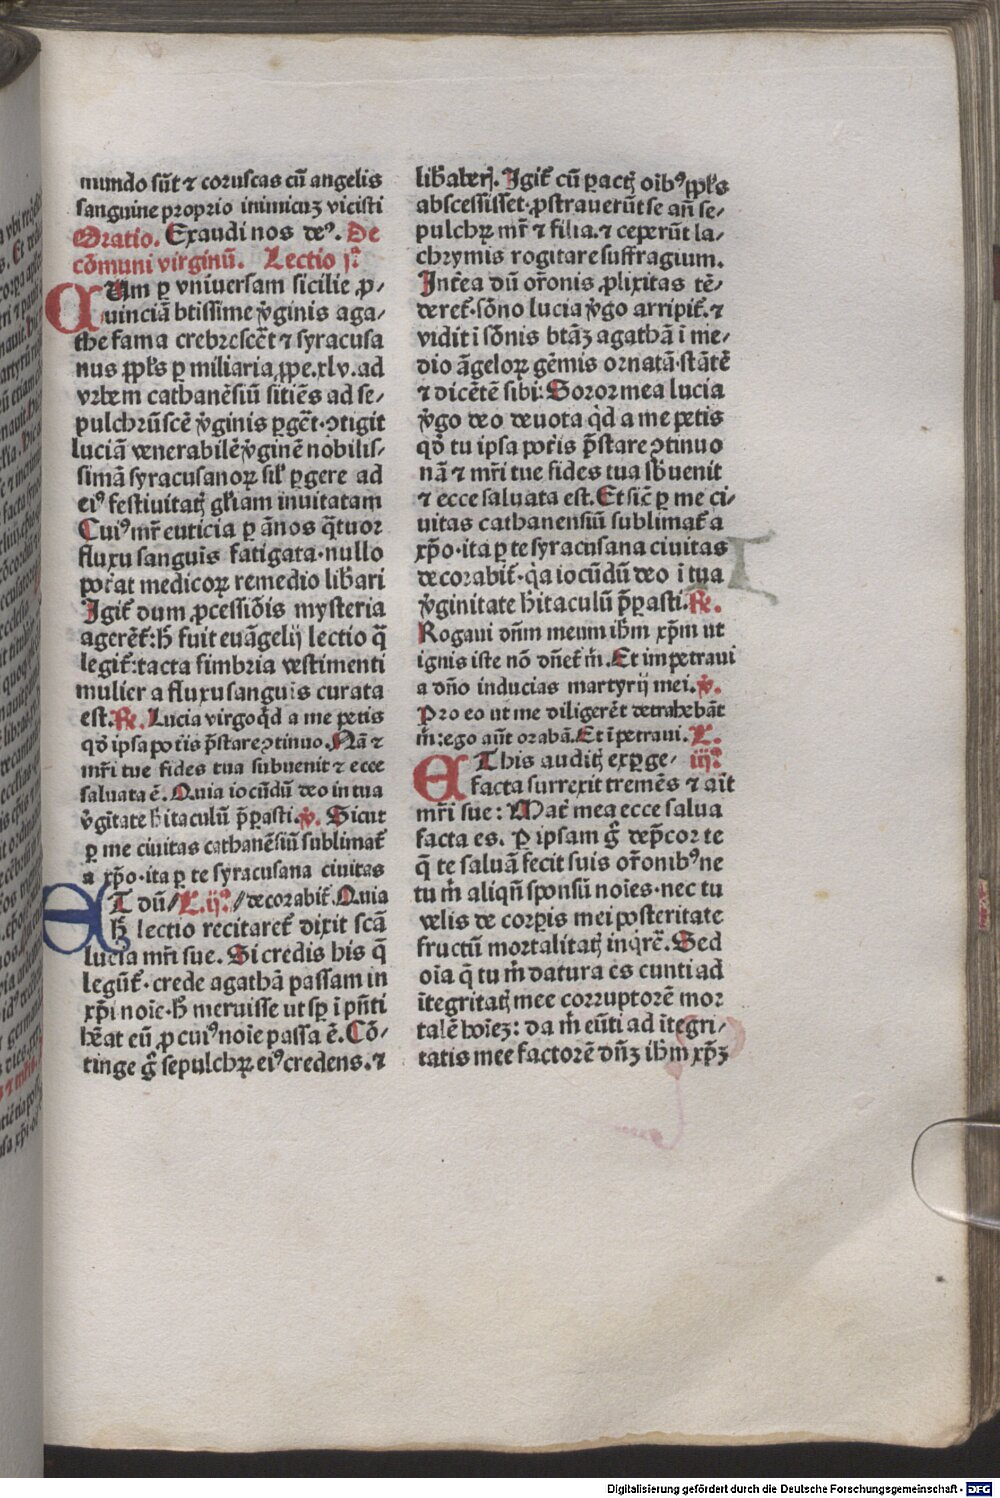 mundo sūt ⁊ coruscas cū angelis
sanguine proprio inimicuʒ vicisti
Oratio. Exaudi nos deꝰ. De
cōmuni virginū. Lectio j.ª
CUm ꝑ vniuersam sicilie ꝓ-
uinciā btissime v̾ginis aga-
the fama crebrescēt ⁊ syracusa
nus ppl̄s ꝑ miliaria ꝓpe.xlv. ad
vrbem cathanēsiū sitiēs ad se-
pulchrū scē v̾ginis ꝑgēt ꝯtigit
luciā venerabilē v̾ginē nobilis-
simā syracusanoꝝ sil̄ ꝑgere ad
eiꝰ festiuitatꝭ gl̄iam inuitatam
Cuiꝰ mr̄ euticia ꝑ ānos q̄tuor
fluxu sanguīs fatigata·nullo
pot̄at medicoꝝ remedio lib̄ari
Igit̄ dum ꝓcessiōis mysteria
agerēt̄:h̄ fuit euāgelij lectio q̄
legit̄:tacta fimbria vestimenti
mulier a fluxu sanguis curata
est.℟. Lucia virgo qd̄ a me petis
qd̄ ipsa potīs p̄stare ꝯtinuo. Nā ⁊
mr̄i tue fides tua subuenit ⁊ ecce
saluata ē. Quia iocūdū deo in tua
v̾gītate h̄itaculū p̄ꝑasti.℣. Sicut
ꝑ me ciuitas cathanēsiū sublimat̄
a xp̄o·ita ꝑ te syracusana ciuitas
ET dū/L.ij.ª/decorabit̄. Quia
h̄ lectio recitaret̄ dixit scā
lucia mr̄i sue. Si credis his q̄
legūt̄·crede agathā passam in
xp̄i noīe·h̄ meruisse ut sꝑ ī pn̄ti
hēat eū ꝓ cuiꝰ noīe passa ē. Cō-
tinge ḡ sepulchꝝ eiꝰ credens.⁊
lib̄aberꝭ. Igit̄ cū ꝑactꝭ oībꝰ ppl̄s
abscessisset·ꝓstrauerūt se añ se-
pulchꝝ mr̄ ⁊ filia.⁊ ceperūt la-
chrymis rogitare suffragium.
Int̄ea dū or̄onis ꝓlixitas tē-
deret̄·sōno lucia v̾go arripit̄.⁊
vidit ī sōnis btāʒ agathā ī me-
dio āgeloꝝ gēmis ornatā·stātē
⁊ dicētē sibi: Soror mea lucia
v̾go deo deuota qd̄ a me petis
qd̄ tu ipsa pot̄is p̄stare ꝯtinuo
nā ⁊ mr̄i tue fides tua sb̄uenit
⁊ ecce saluata est. Et sic̄ ꝑ me ci-
uitas cathanensiū sublimat̄ a
xp̄o·ita ꝑ te syracusana ciuitas
decorabit̄·q̄a iocūdū deo ī tua
v̾ginitate h̄itaculū p̄ꝑasti.℟.
Rogaui dn̄m meum ih̄m xp̄m ut
ignis iste nō dn̄et̄ m̄. Et impetraui
a dn̄o inducias martyrij mei.℣.
Pro eo ut me diligerēt detrahebāt
m̄:ego aūt orabā. Et īpetraui. L.
EThis auditꝭ exꝑge- iij.ª
facta surrexit tremēs ⁊ aīt
mr̄i sue: Mat̄ mea ecce salua
facta es. ꝑ ipsam ḡ dep̄cor te
q̄ te saluā fecit suis or̄onibꝰ ne
tu m̄ aliqn̄ sponsū noīes·nec tu
velis de corꝑis mei posteritate
fructū mortalitatꝭ inqr̄ē. Sed
oīa q̄ tu m̄ datura es cunti ad
ītegritatꝭ mee corruptorē mor
talē hoīeʒ: da m̄ eūti ad ītegri-
tatis mee factorē dn̄ʒ ih̄m xp̄ʒ
Digitalisierung gefördert durch die Deutsche Forschungsgemeinschaft - DFG